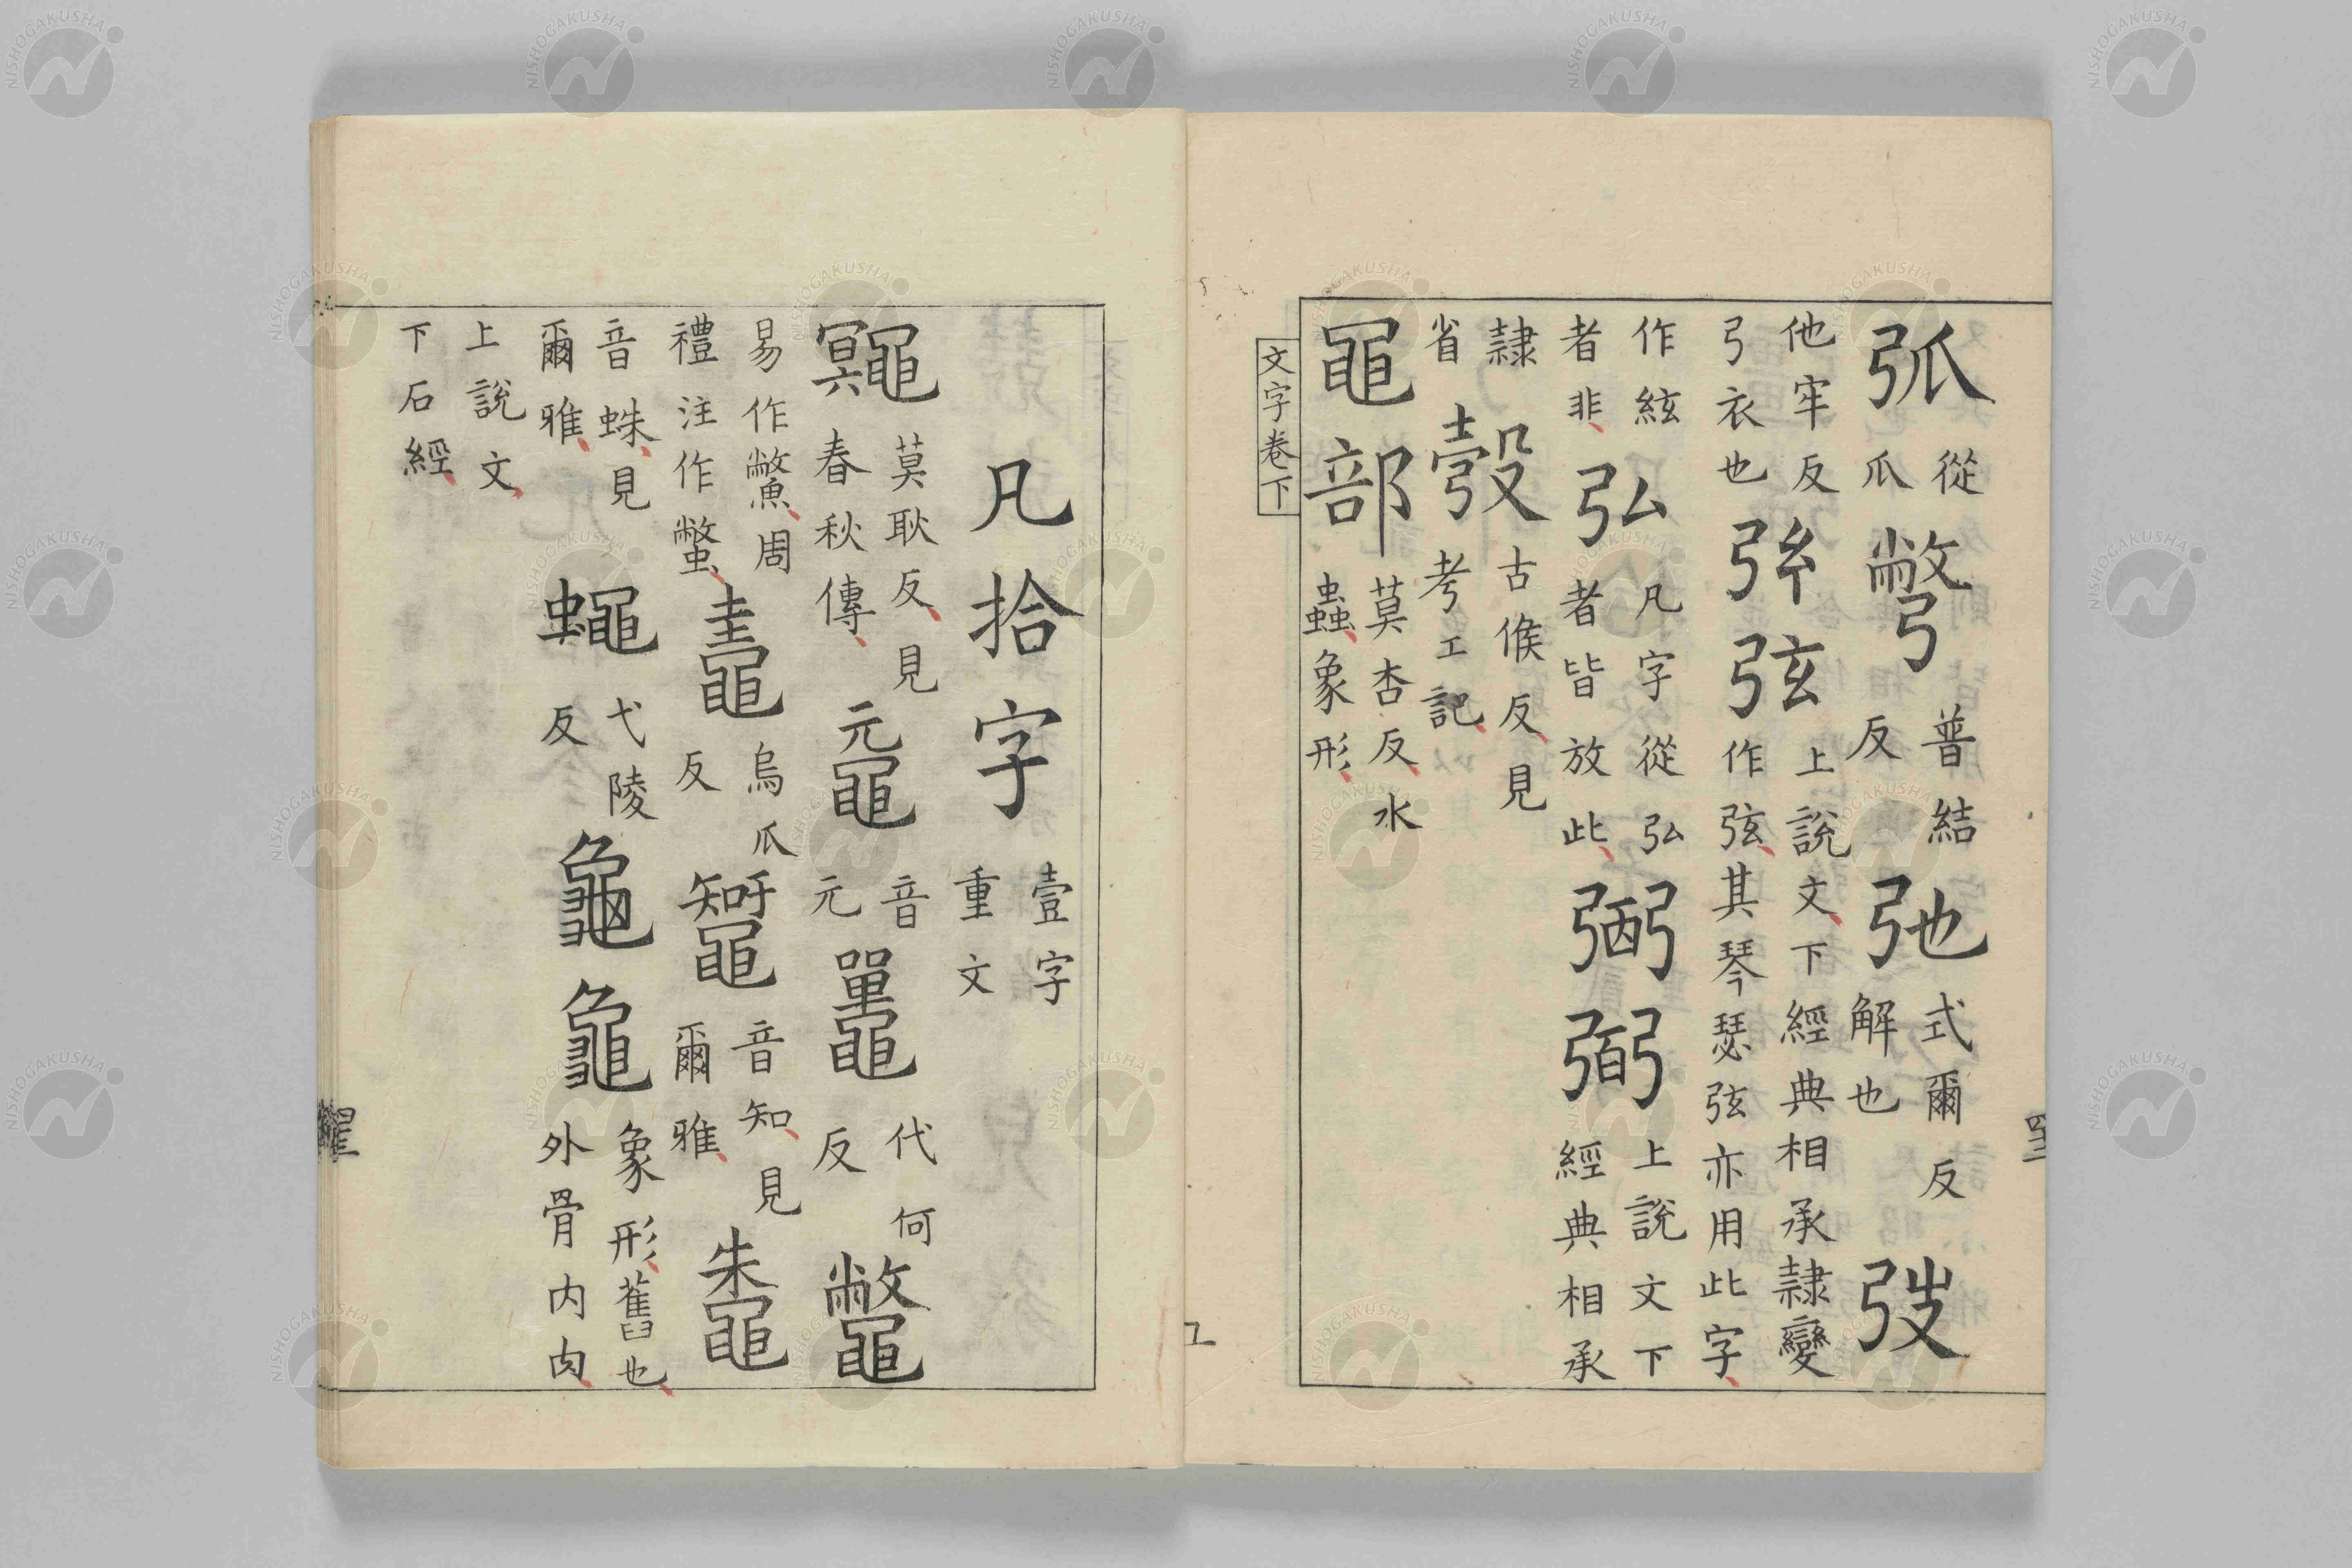 弧從瓜彆普結反弛式爾反解也弢
他牢反弓衣也弦弦上說文下經典相承隸變作弦其琴瑟弦亦用此字
作絃者非弘凡字從弘者皆放此弼弼上說文下經典相承
隸省彀古侯反見考工記
黽部莫杏反水蟲象形
文字卷下
凡拾字壹字重文
鼆莫耿反見春秋傳黿音元鼉代何反鼈
易作鱉周禮注作蟞鼃烏瓜反音知見爾雅鼄
音蛛見爾雅蠅弋陵反龜龜象形舊也外骨内肉
上說文下石經
NISHOGAKUSHA